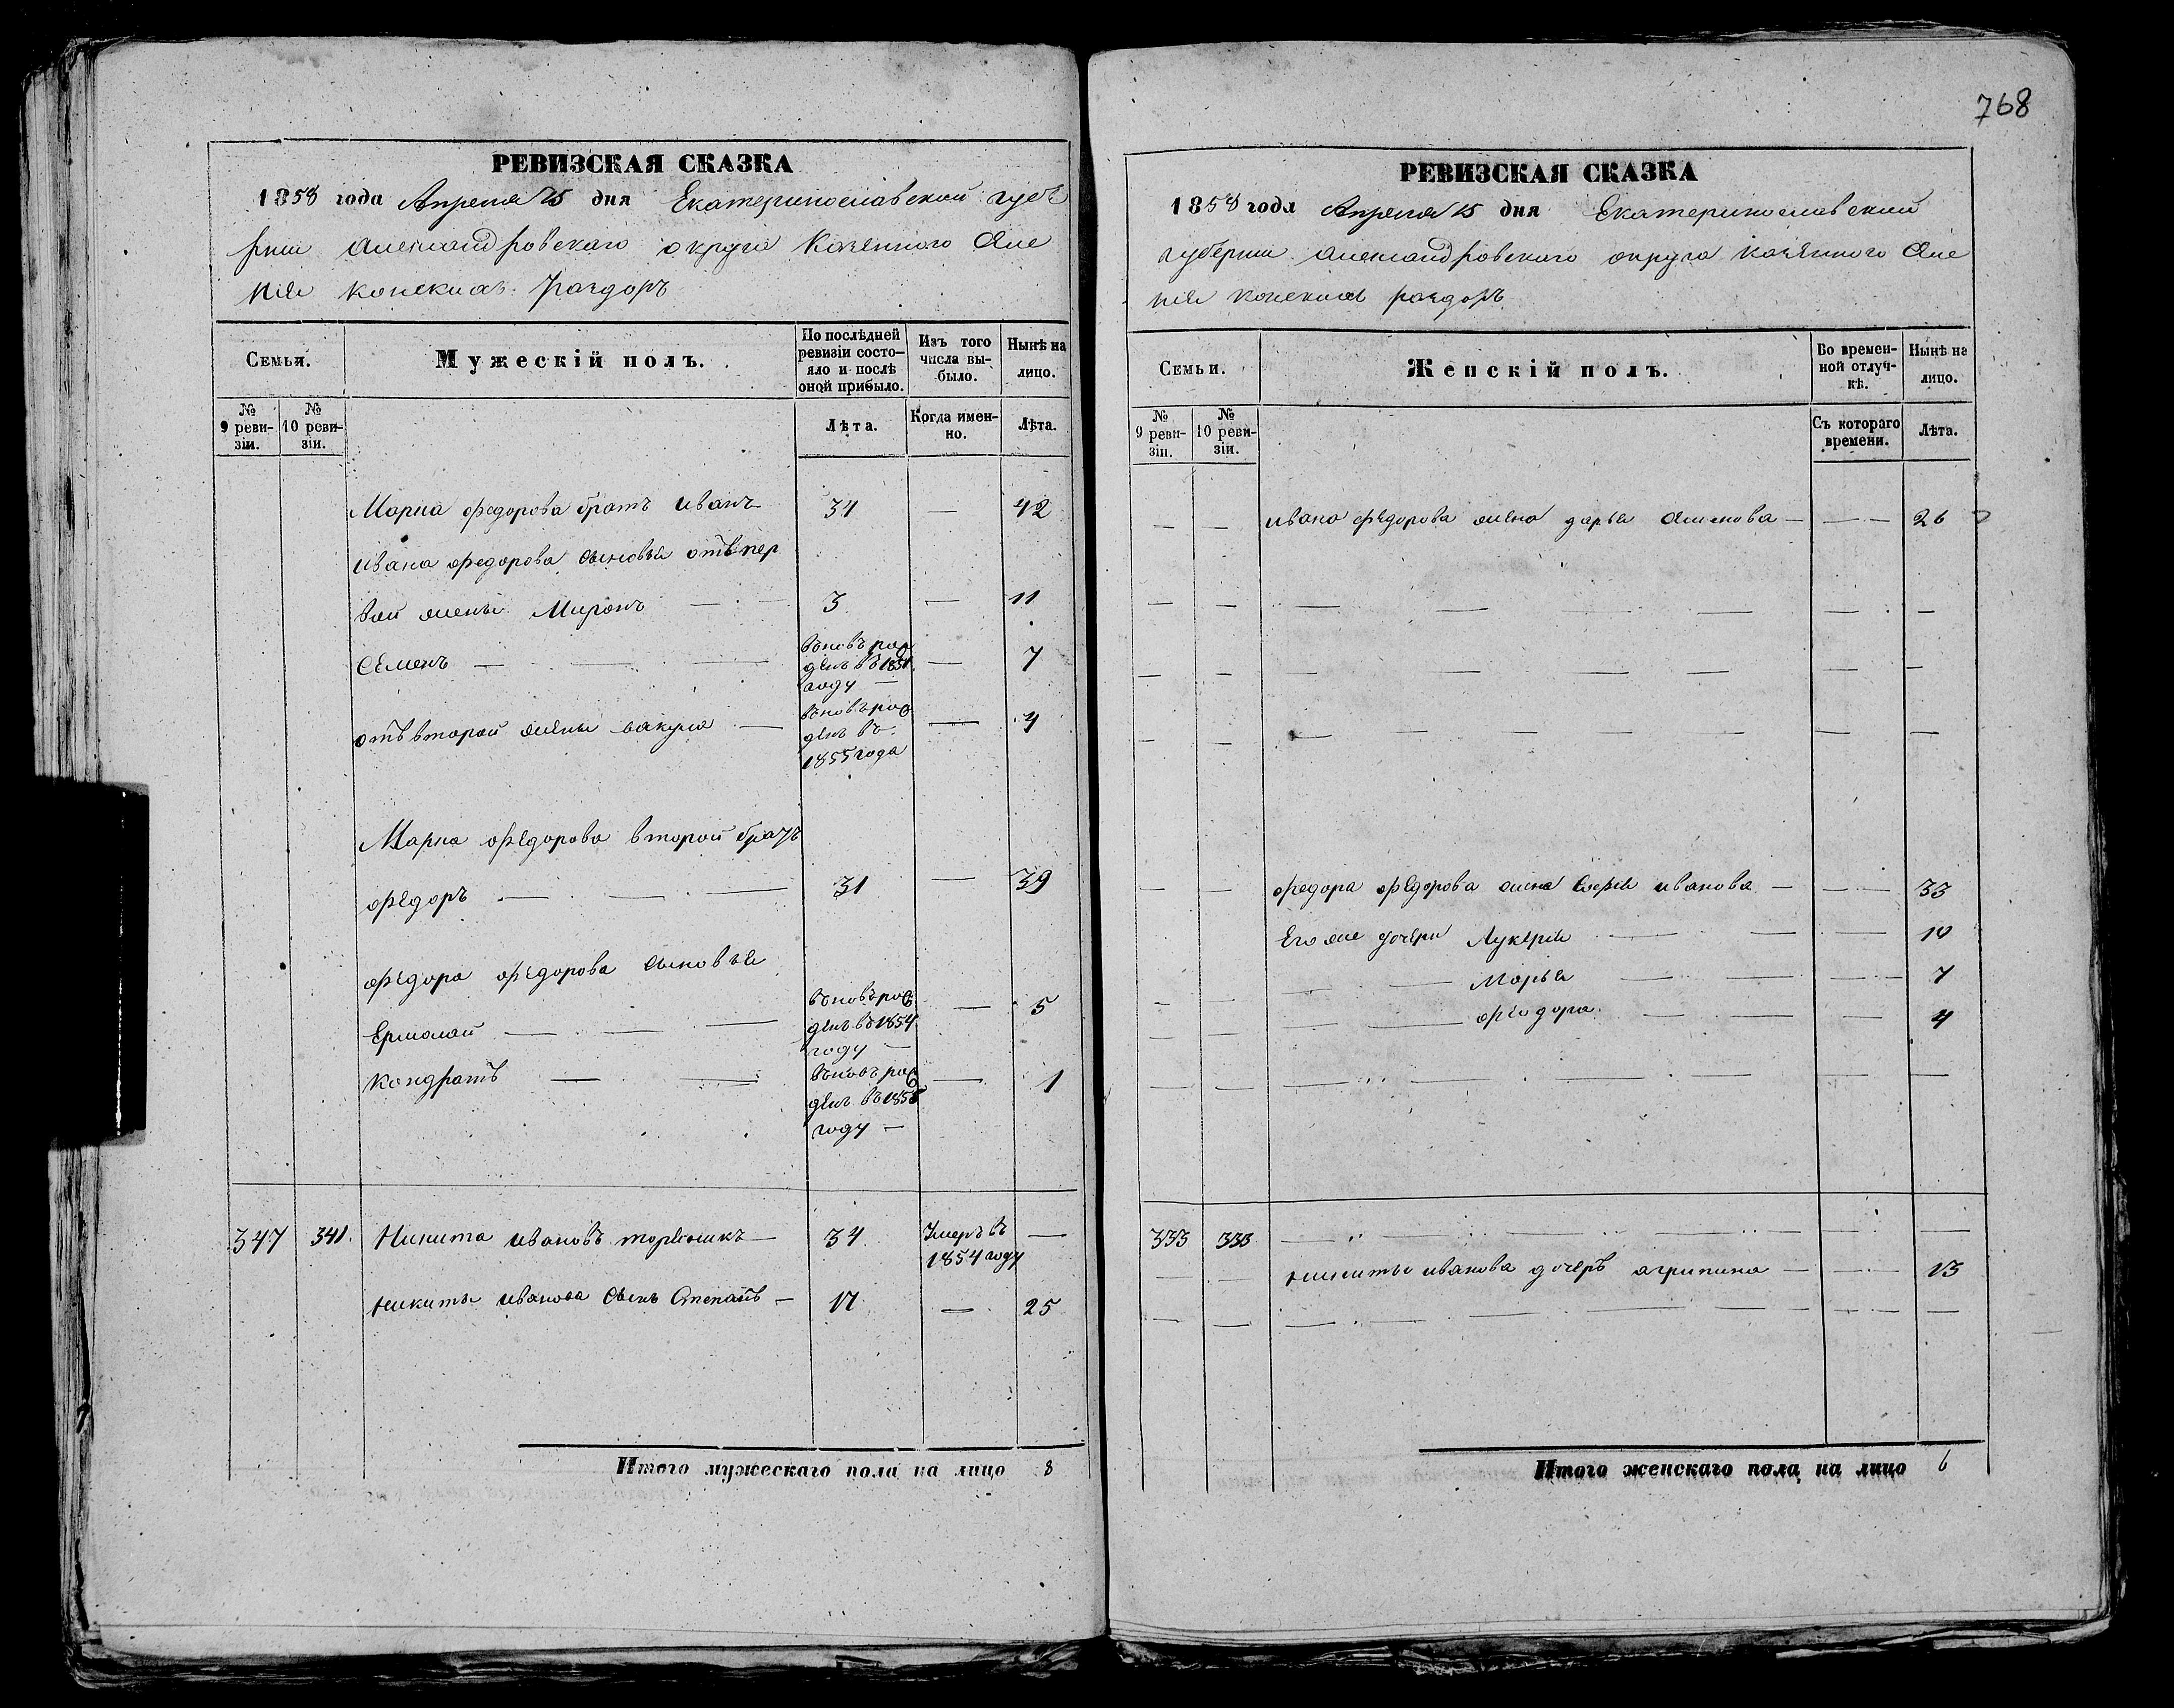 768
РЕВИЗСКАЯ СКАЗКА
1858 года Апреля 15 дня Екатеринославской губе
рнии Александровскаго округа Казенного селе
ния Конскихъ Раздоръ
Семья.
Мужескій полъ.
По послѣдней ревизіи состо-
яло и послѣ оной прибыло.
Изъ того числа вы-
было.
Нынѣ на лицо.
№ 9 реви-
зіи.
№ 10 реви-
зіи.
Лѣта.
Когда имен-
но.
Лѣта.
Марка Федорова братъ Иванъ 34 — 42
Ивана Федорова сыновья отъ пер
вой жены Миронъ — 3 — 11
Семенъ — вновь рож
денъ въ 1851
году — 7
отъ второй жены Вакула — вновь рож
денъ въ
1855 года — 4
Марка Федорова второй братъ
Федоръ — 31 — 39
Федора Федорова сыновья
Ермолай — вновь рож
денъ въ 1854
году — 5
Кондратъ — вновь рож
денъ въ 1858
году — 1
347 341. Никита Ивановъ 34 Умеръ въ
1854 году —
Никиты Иванова сынъ Степанъ — 17 — 25
Итого мужескаго пола на лицо 8
РЕВИЗСКАЯ СКАЗКА
1858 года Апреля 15 дня Екатеринославской
губернии Александровского округа казенного селе
ния Конскихъ раздоръ
Семьи.
Женскій полъ.
Во времен-
ной отлуч-
кѣ.
Нынѣ на лицо.
№ 9 реви-
зіи.
№ 10 реви-
зіи.
Съ котораго времени.
Лѣта.
— — Ивана Федорова жена дарья — — 26
— — Федора Федорова жена Софья Иванова — — 33
Его же дочери Лукерья — — 10
— Марья — — 7
— Феодора — — 4
333 333 — — —
— — Никиты Иванова дочеръ агрипина — — 13
Итого женскаго пола на лицо 6